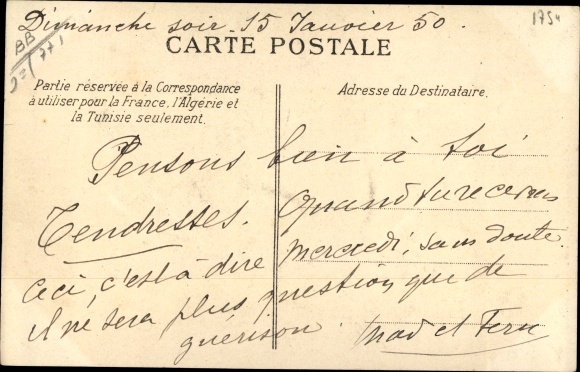 Dimanche soir 15 Janvier 50.
1754
BB
CARTE POSTALE
Partie réservée à la Correspondance
à utiliser pour la France, l'Algérie et
la Tunisie seulement.
Adresse du Destinataire.
Pensons bien à toi
Tendresses.
Quand tu recevras
ceci, c'est à dire mercredi, sans doute.
il ne sera plus question que de
guérison. Mad et Fern